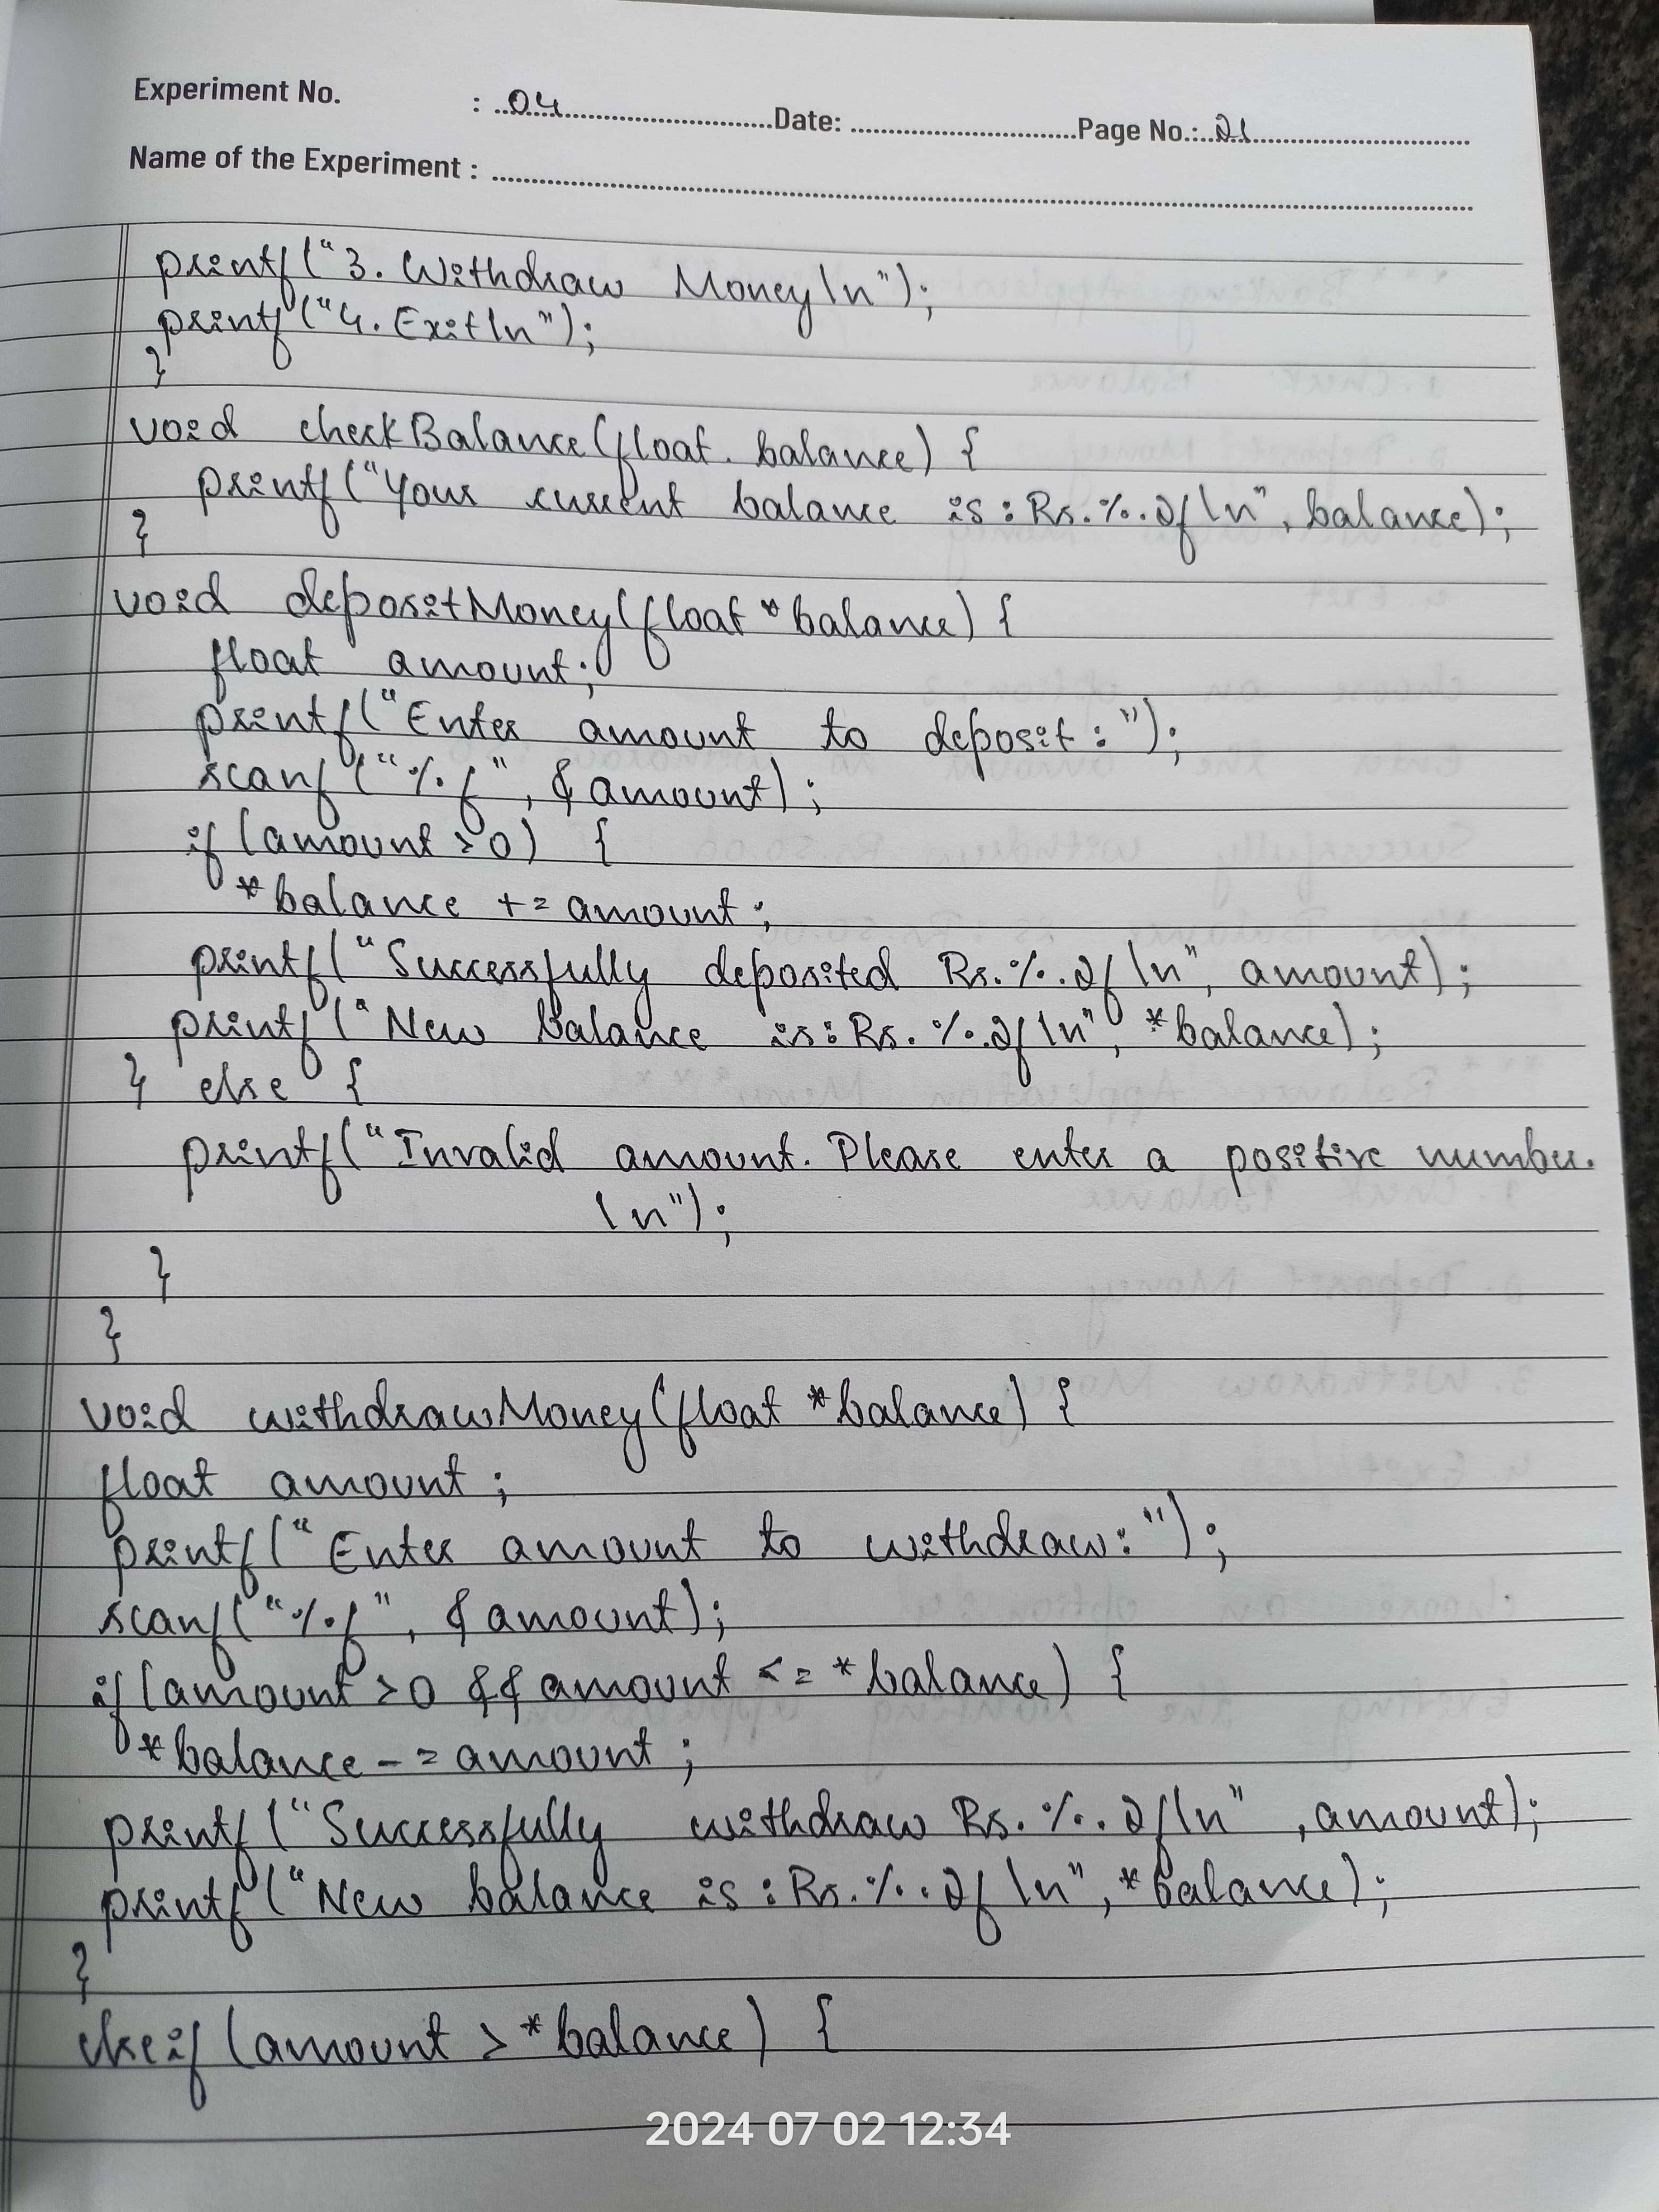 Experiment No. : 04 Date: Page No.: 21
Name of the Experiment :
printf("3. Withdraw Money\n");
printf("4. Exit\n");
}
void checkBalance(float balance) {
printf("Your current balance is: Rs.%.2f\n", balance);
}
void depositMoney(float *balance) {
float amount;
printf("Enter amount to deposit: ");
scanf("%f", &amount);
if (amount > 0) {
*balance += amount;
printf("Successfully deposited Rs.%.2f\n", amount);
printf("New balance is: Rs.%.2f\n", *balance);
} else {
printf("Invalid amount. Please enter a positive number.
\n");
}
}
void withdrawMoney(float *balance) {
float amount;
printf("Enter amount to withdraw: ");
scanf("%f", &amount);
if (amount > 0 && amount <= *balance) {
*balance -= amount;
printf("Successfully withdraw Rs.%.2f\n", amount);
printf("New balance is: Rs.%.2f\n", *balance);
}
else if (amount > *balance) {
2024 07 02 12:34